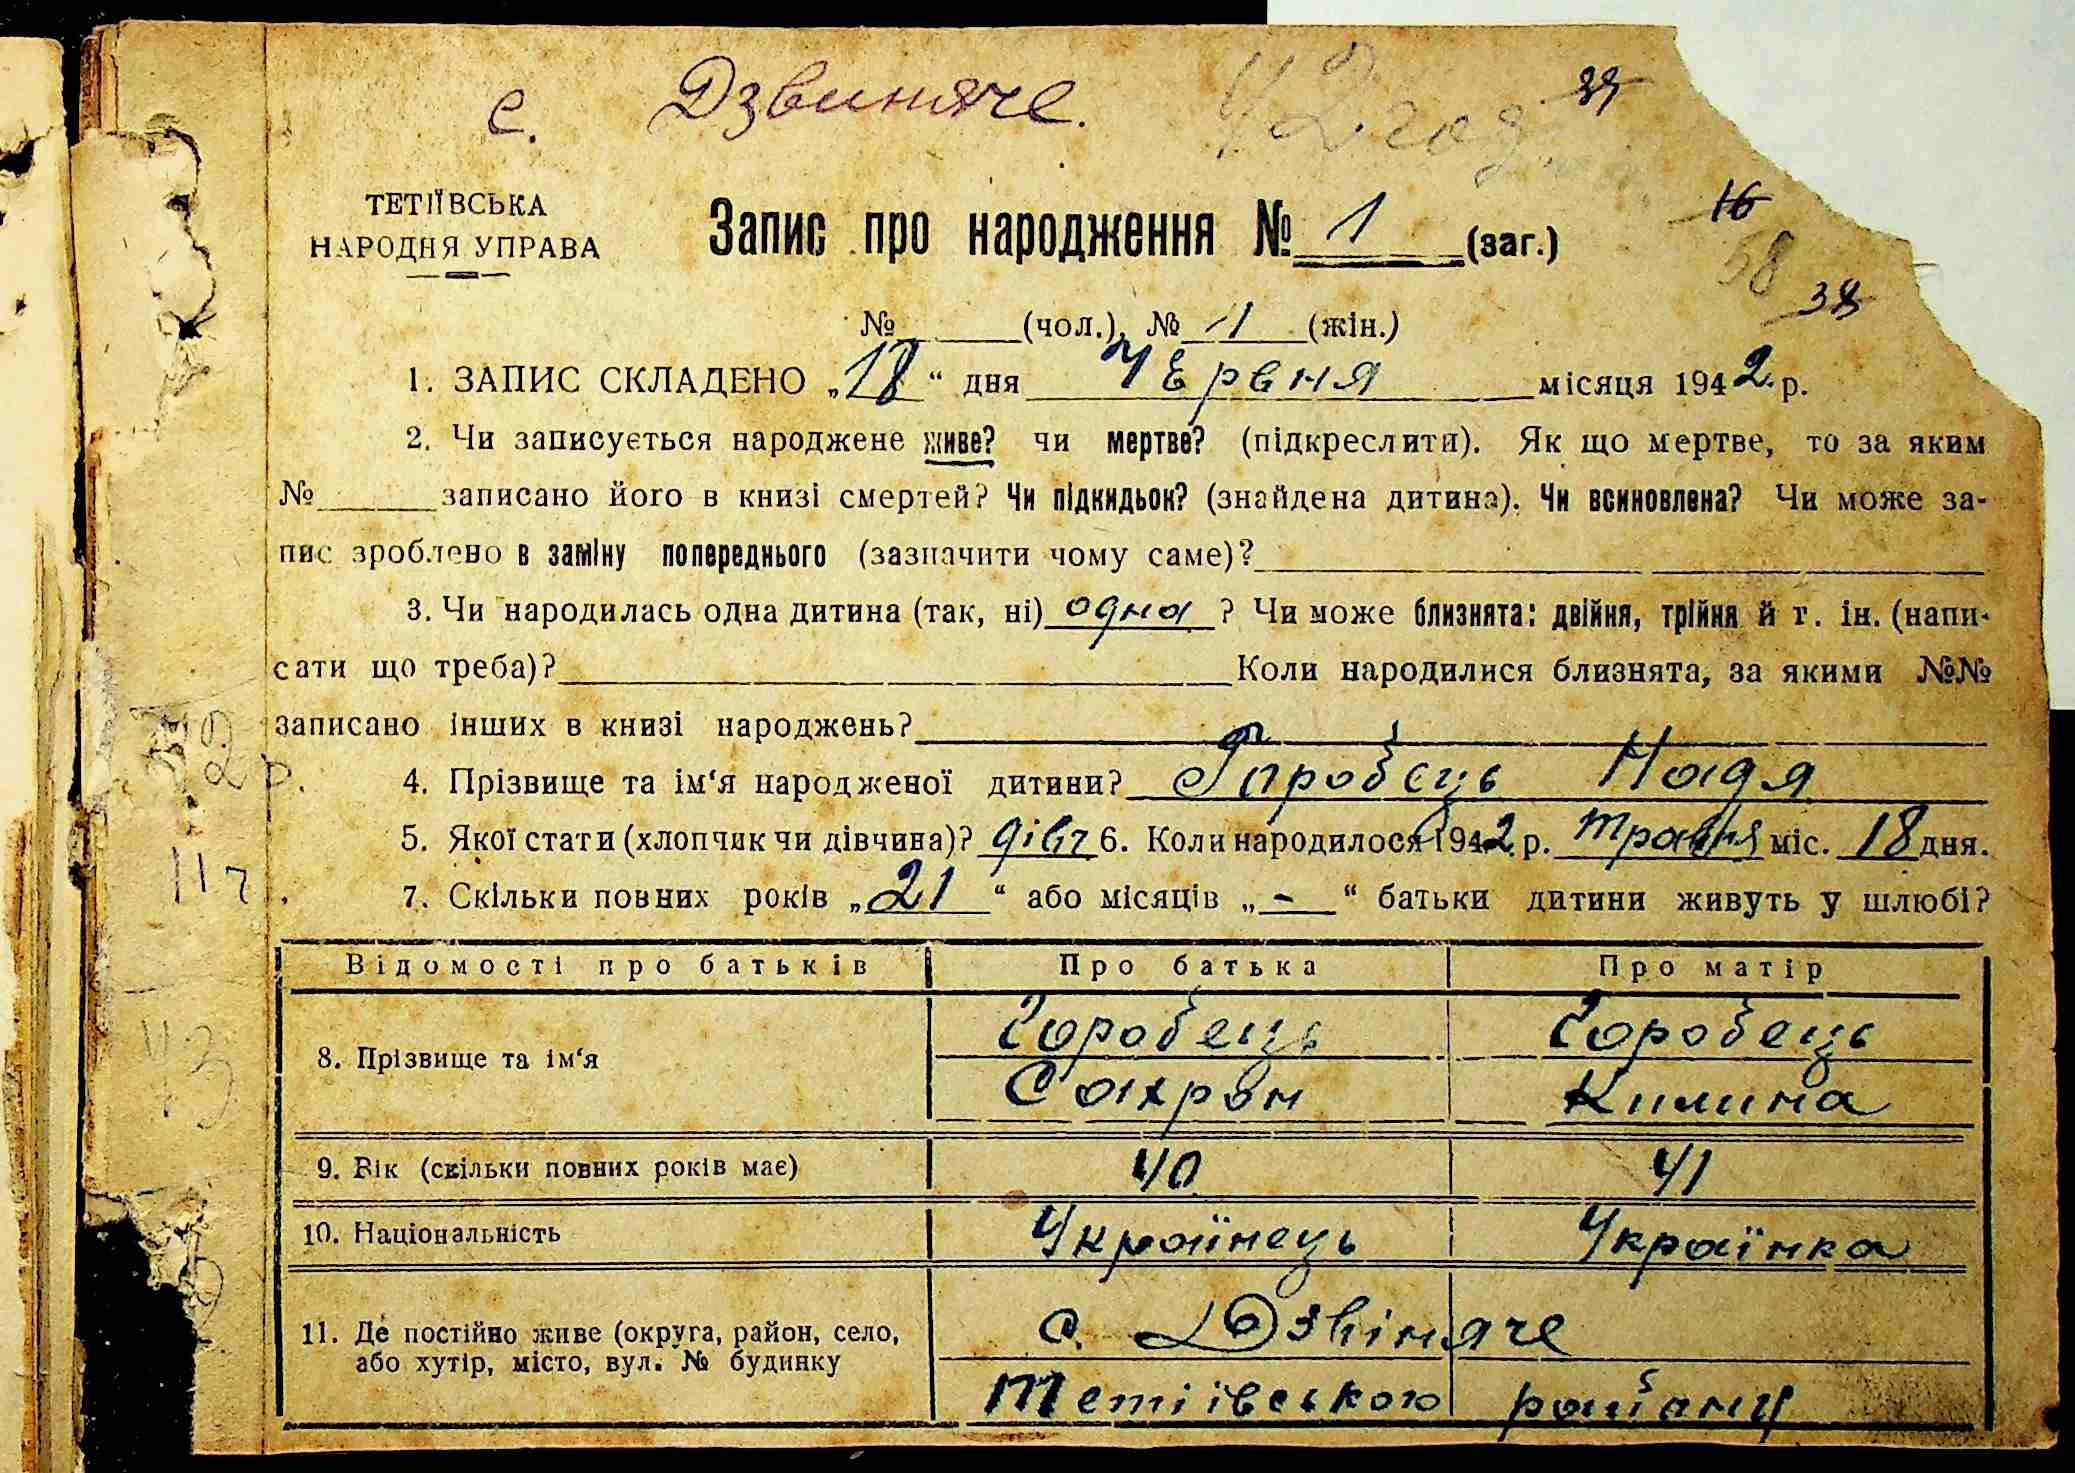 с. Дзвиняче.
39
ТЕТІЇВСЬКА
НАРОДНЯ УПРАВА
Запис про народження № 1 (заг.)
16
58
№ (чол.), № 1 (жін.)
1. ЗАПИС СКЛАДЕНО „18“ дня Червня місяця 1942 р.
2. Чи записується народжене живе? чи мертве? (підкреслити). Як що мертве, то за яким
№ записано його в книзі смертей? Чи підкидьок? (знайдена дитина). Чи всиновлена? Чи може за-
пис зроблено в заміну попереднього (зазначити чому саме)?
3. Чи народилась одна дитина (так, ні) одна ? Чи може близнята: двійня, трійня й г. ін. (напи-
сати що треба)? Коли народилися близнята, за якими №№
записано інших в книзі народжень?
4. Прізвище та ім‘я народженої дитини? Горобець Надя
5. Якої стати (хлопчик чи дівчина)? дівч 6. Коли народилося 1942 р. травня міс. 18 дня.
7. Скільки повних років „21“ або місяців „-“ батьки дитини живуть у шлюбі?
Відомості про батьків Про батька Про матір
8. Прізвище та ім‘я Горобець Горобець
Сахрон Килина
9. Вік (скільки повних років має) 40 41
10. Національність Українець Українка
11. Де постійно живе (округа, район, село, с. Дзвіняче
або хутір, місто, вул. № будинку Тетіївського району